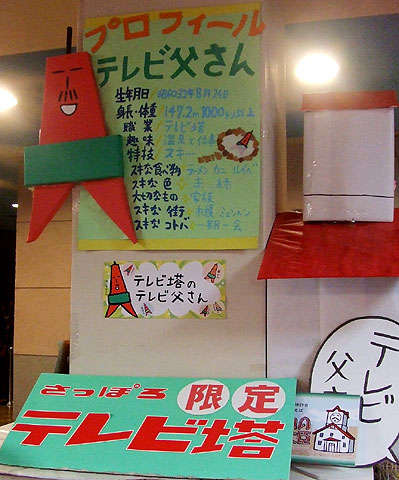 プロフィール
テレビ父さん
生年月日 昭和32年8月24日
身長・体重 147.2m 1000トン以上
職業 テレビ塔
趣味 温泉と仕事
特技 スキー
スキな食べ物 ラーメン カニ ルイベ
スキな色 赤、緑
大切なもの 家族
スキな街 札幌
スキなコトバ 一期一会
テレビ塔の
テレビ父さん
さっぽろ 限定
テレビ塔
テレビ
父さ